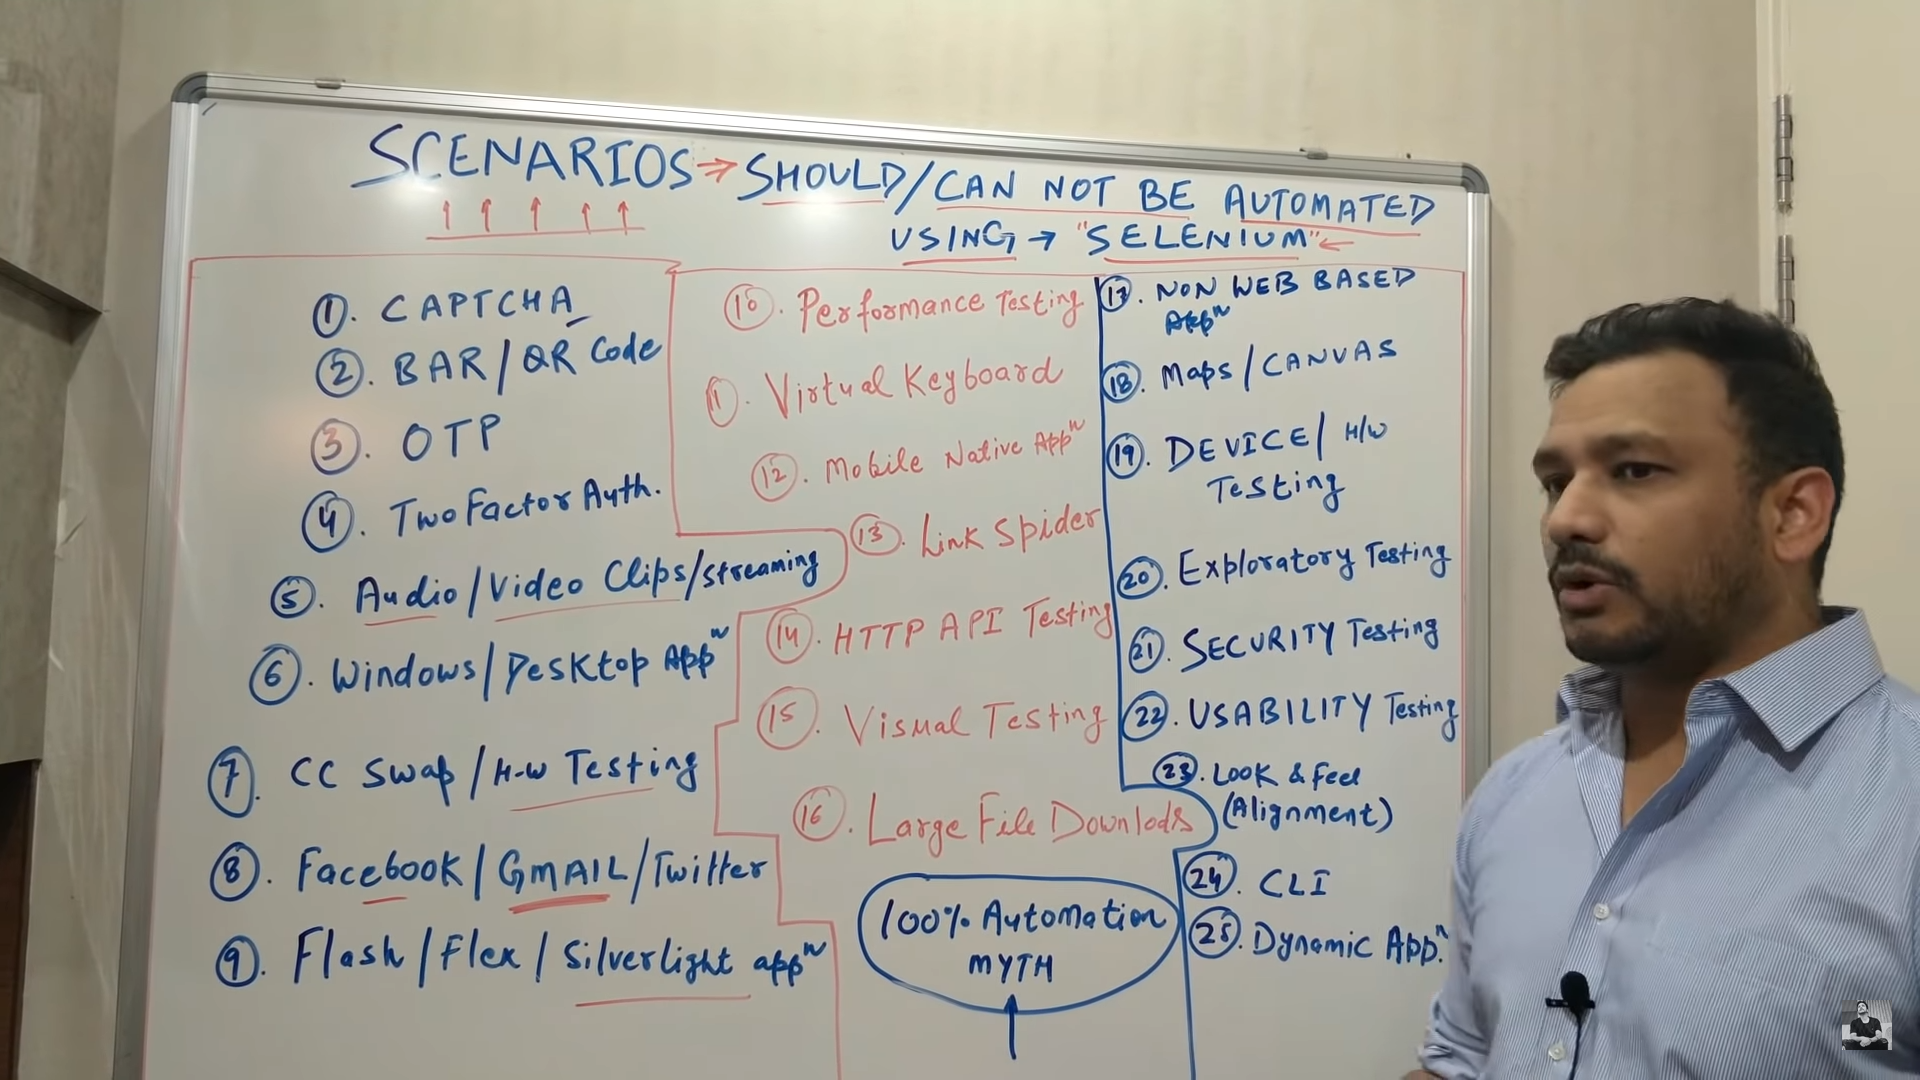 SCENARIOS → SHOULD/CAN NOT BE AUTOMATED
USING → "SELENIUM" ←
1. CAPTCHA
2. BAR/QR Code
3. OTP
4. Two Factor Auth.
5. Audio/Video Clips/streaming
6. Windows/Desktop Appⁿ
7. CC Swap/H-W Testing
8. Facebook/GMAIL/Twitter
9. Flash/Flex/Silverlight appⁿ
10. Performance Testing
11. Virtual Keyboard
12. Mobile Native Appⁿ
13. Link Spider
14. HTTP API Testing
15. Visual Testing
16. Large File Downlods
100% Automation
MYTH
17. NON WEB BASED
Appⁿ
18. Maps/CANVAS
19. DEVICE/H/W
Testing
20. Exploratory Testing
21. SECURITY Testing
22. USABILITY Testing
23. LOOK & Feel
(Alignment)
24. CLI
25. Dynamic Appⁿ.